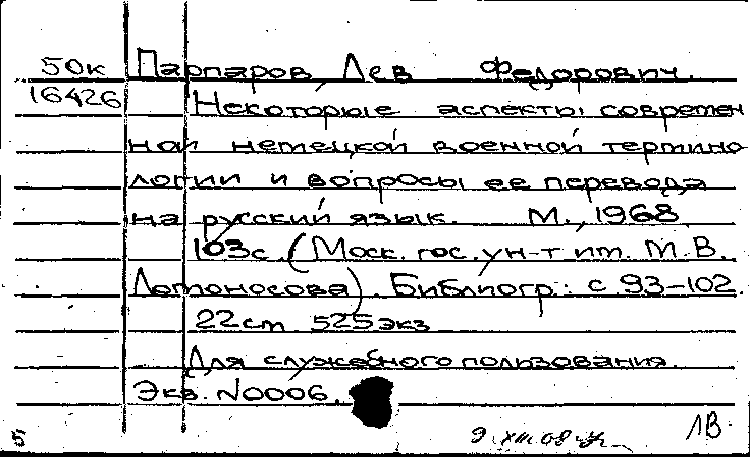 50к Парпаров, Лев Федорович.
16426 Некоторые аспекты современ
ной немецкой военной термино
логии и вопросы ее перевода
на русский язык. М., 1968
103с. (Моск. гос. ун-т им. М.В.
Ломоносова). Библиогр.: с 93-102.
22см 525экз
Для служебного пользования.
Экз. N0006.
ЛВ.
5